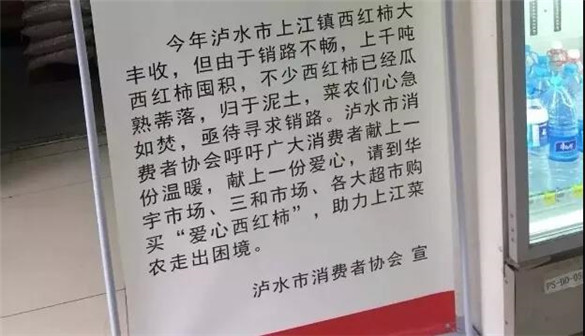 今年泸水市上江镇西红柿大
丰收，但由于销路不畅，上千吨
西红柿囤积，不少西红柿已经瓜
熟蒂落，归于泥土，菜农们心急
如焚，亟待寻求销路。泸水市消
费者协会呼吁广大消费者献上一
份温暖，献上一份爱心，请到华
宇市场、三和市场、各大超市购
买“爱心西红柿”，助力上江菜
农走出困境。
泸水市消费者协会 宣